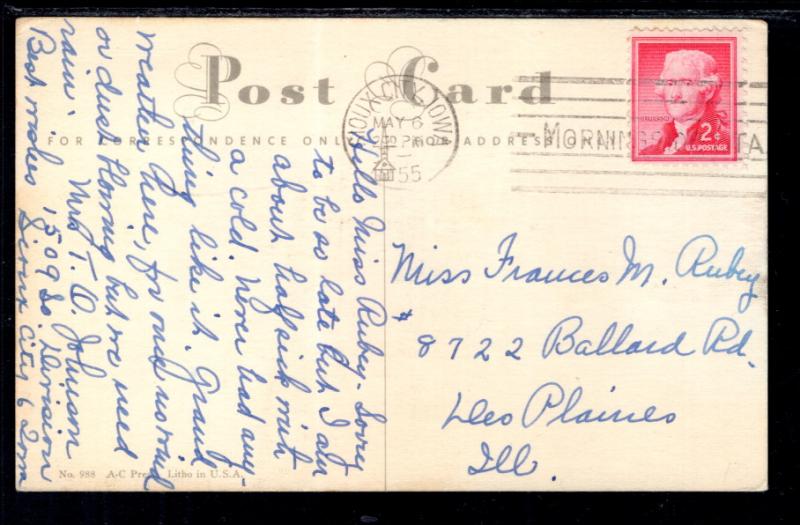 Post Card
FOR CORRESPONDENCE ONLY FOR ADDRESS ONLY
SIOUX CITY, IOWA
MAY 6
PM
1955
MORNINGS
JEFFERSON
2¢
U.S. POSTAGE
Hello Miss Rubey - Sorry
to be so late but I am
about half sick with
a cold. Never had any-
thing like it. Grand
weather here, for once no wind
or dust blowing but we need
rain.
Best wishes Mrs T. O. Johnson
1509 So. Division
Sioux City 6 Iowa
Miss Frances M. Rubey
# 8722 Ballard Rd.
Des Plaines
Ill.
No. 988 A-C Press Litho in U.S.A.